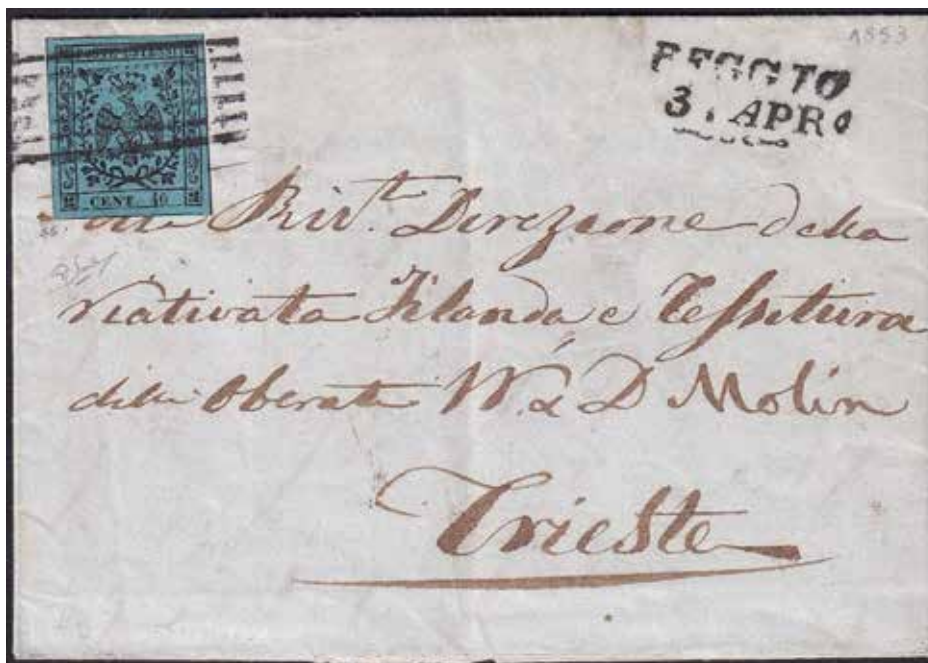 1853
REGGIO
3 APR
CENT. 40
Direzione della
riattivata Filanda e Tessitura
delli Oberati W. & D Molin
Trieste